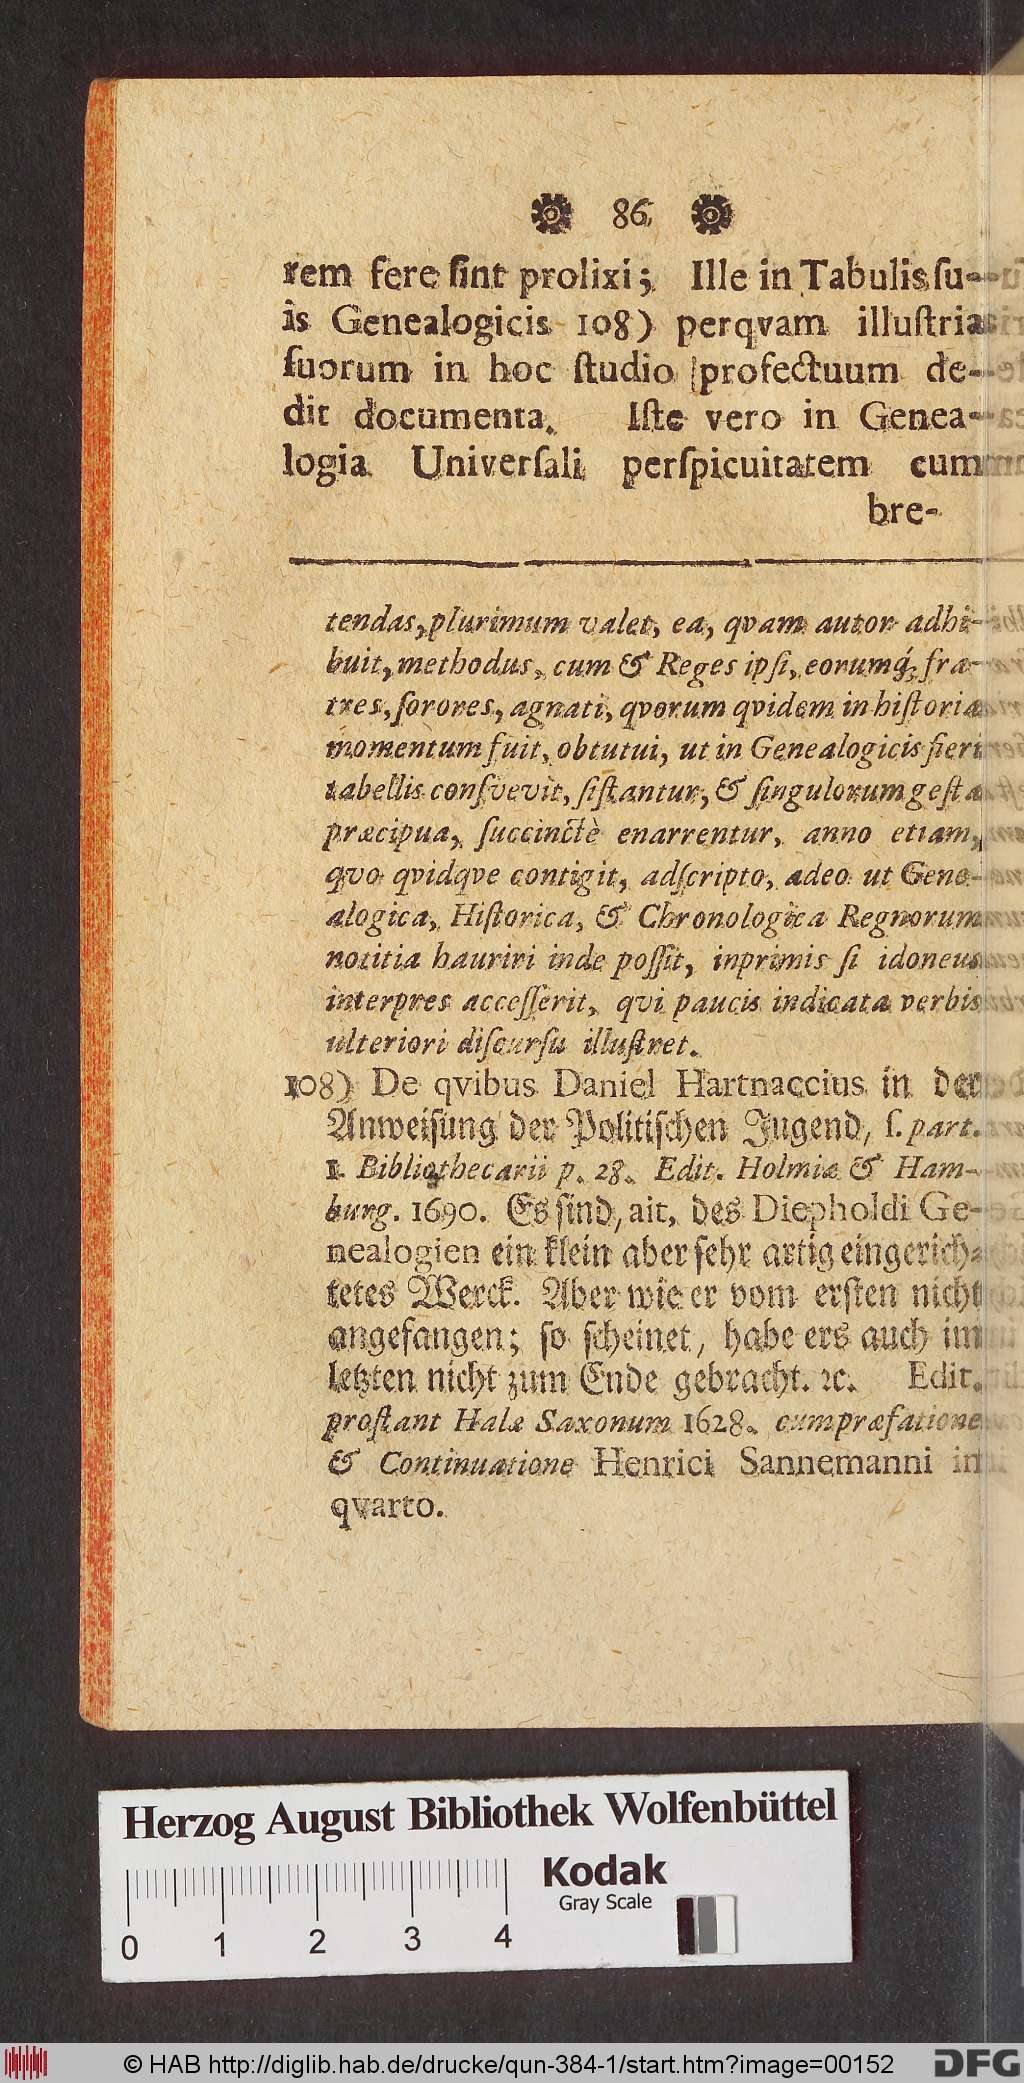 86
rem fere ſint prolixi; Ille in Tabulis ſu-
is Genealogicis 108) perqvam illuſtria
ſuorum in hoc ſtudio profectuum de-
dit documenta. Iſte vero in Genea-
logia Univerſali perſpicuitatem cum
bre-
tendas, plurimum valet, ea, qvam autor adhi-
buit, methodus, cum & Reges ipſi, eorumq́; fra-
tres, ſorores, agnati, qvorum qvidem in hiſtoria
momentum fuit, obtutui, ut in Genealogicis fieri
tabellis conſvevit, ſiſtantur, & ſingulorum geſta
præcipua, ſuccinctè enarrentur, anno etiam,
qvo qvidqve contigit, adſcripto, adeo ut Gene-
alogica, Hiſtorica, & Chronologica Regnorum
notitia hauriri inde poſſit, inprimis ſi idoneus
interpres acceſſerit, qvi paucis indicata verbis
ulteriori diſcurſu illuſtret.
108) De qvibus Daniel Hartnaccius in der
Anweiſung der Politiſchen Jugend, ſ. part.
1. Bibliothecarii p. 28. Edit. Holmiæ & Ham-
burg. 1690. Es ſind, ait, des Diepholdi Ge-
nealogien ein klein aber ſehr artig eingerich-
tetes Werck. Aber wie er vom erſten nicht
angefangen; ſo ſcheinet, habe ers auch im
letzten nicht zum Ende gebracht. ꝛc. Edit.
proſtant Halæ Saxonum 1628. cum præfatione
& Continuatione Henrici Sannemanni in
qvarto.
Herzog August Bibliothek Wolfenbüttel
Kodak
Gray Scale
0 1 2 3 4
© HAB http://diglib.hab.de/drucke/qun-384-1/start.htm?image=00152
DFG